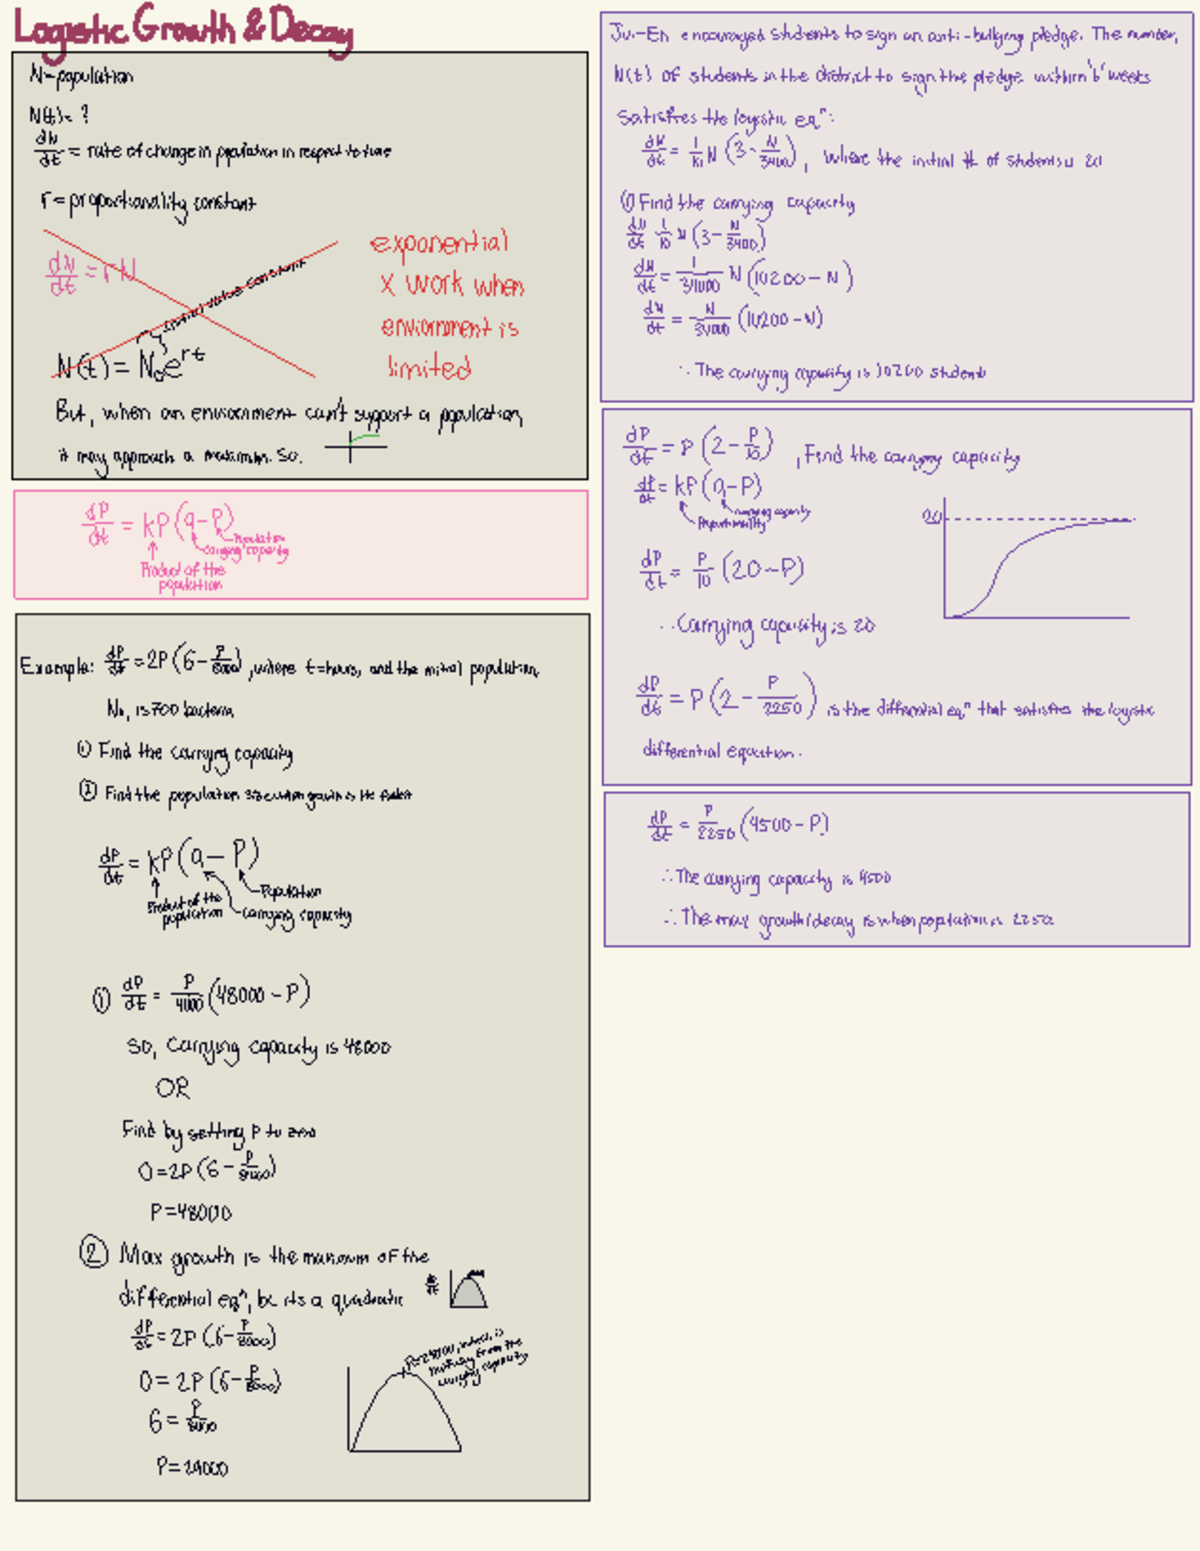 Logistic Growth & Decay
N=population
N(t)= ?
dN/dt = rate of change in population in respect to time
r = proportionality constant
dN/dt = rN
initial value constant
N(t) = N₀e^rt
exponential
x work when
environment is
limited
But, when an environment can't support a population,
it may approach a maximum. So,
dP/dt = kP(a-P)
Population
carrying capacity
Product of the
population
Example: dP/dt = 2P(6-P/8000), where t=hours, and the initial population,
N₀, is 700 bacteria
① Find the carrying capacity
② Find the population size when growth is the fastest
dP/dt = kP(a-P)
Population
Product of the
population
carrying capacity
① dP/dt = P/4000 (48000-P)
So, Carrying capacity is 48000
OR
Find by setting P to zero
0=2P(6-P/8000)
P=48000
② Max growth is the maximum of the
differential eqⁿ, bc its a quadratic
dP/dt = 2P(6-P/8000)
0 = 2P(6-P/8000)
6 = P/8000
P=24000
P=24000, which is
halfway from the
carrying capacity
Ju-En encouraged students to sign an anti-bullying pledge. The number,
N(t) of students in the district to sign the pledge within 't' weeks
satisfies the logistic eqⁿ:
dN/dt = 1/10 N(3-N/3400), where the initial # of students is 20
① Find the carrying capacity
dN/dt 1/10 N(3-N/3400)
dN/dt = 1/34000 N(10200-N)
dN/dt = N/34000 (10200-N)
∴ The carrying capacity is 10200 students
dP/dt = P(2-P/10), Find the carrying capacity
dP/dt = kP(a-P)
carrying capacity
Proportionality
dP/dt = P/10 (20-P)
20
∴ Carrying capacity is 20
dP/dt = P(2-P/2250) is the differential eqⁿ that satisfies the logistic
differential equation.
dP/dt = P/2250 (4500-P)
∴ The carrying capacity is 4500
∴ The max growth/decay is when population is 2250